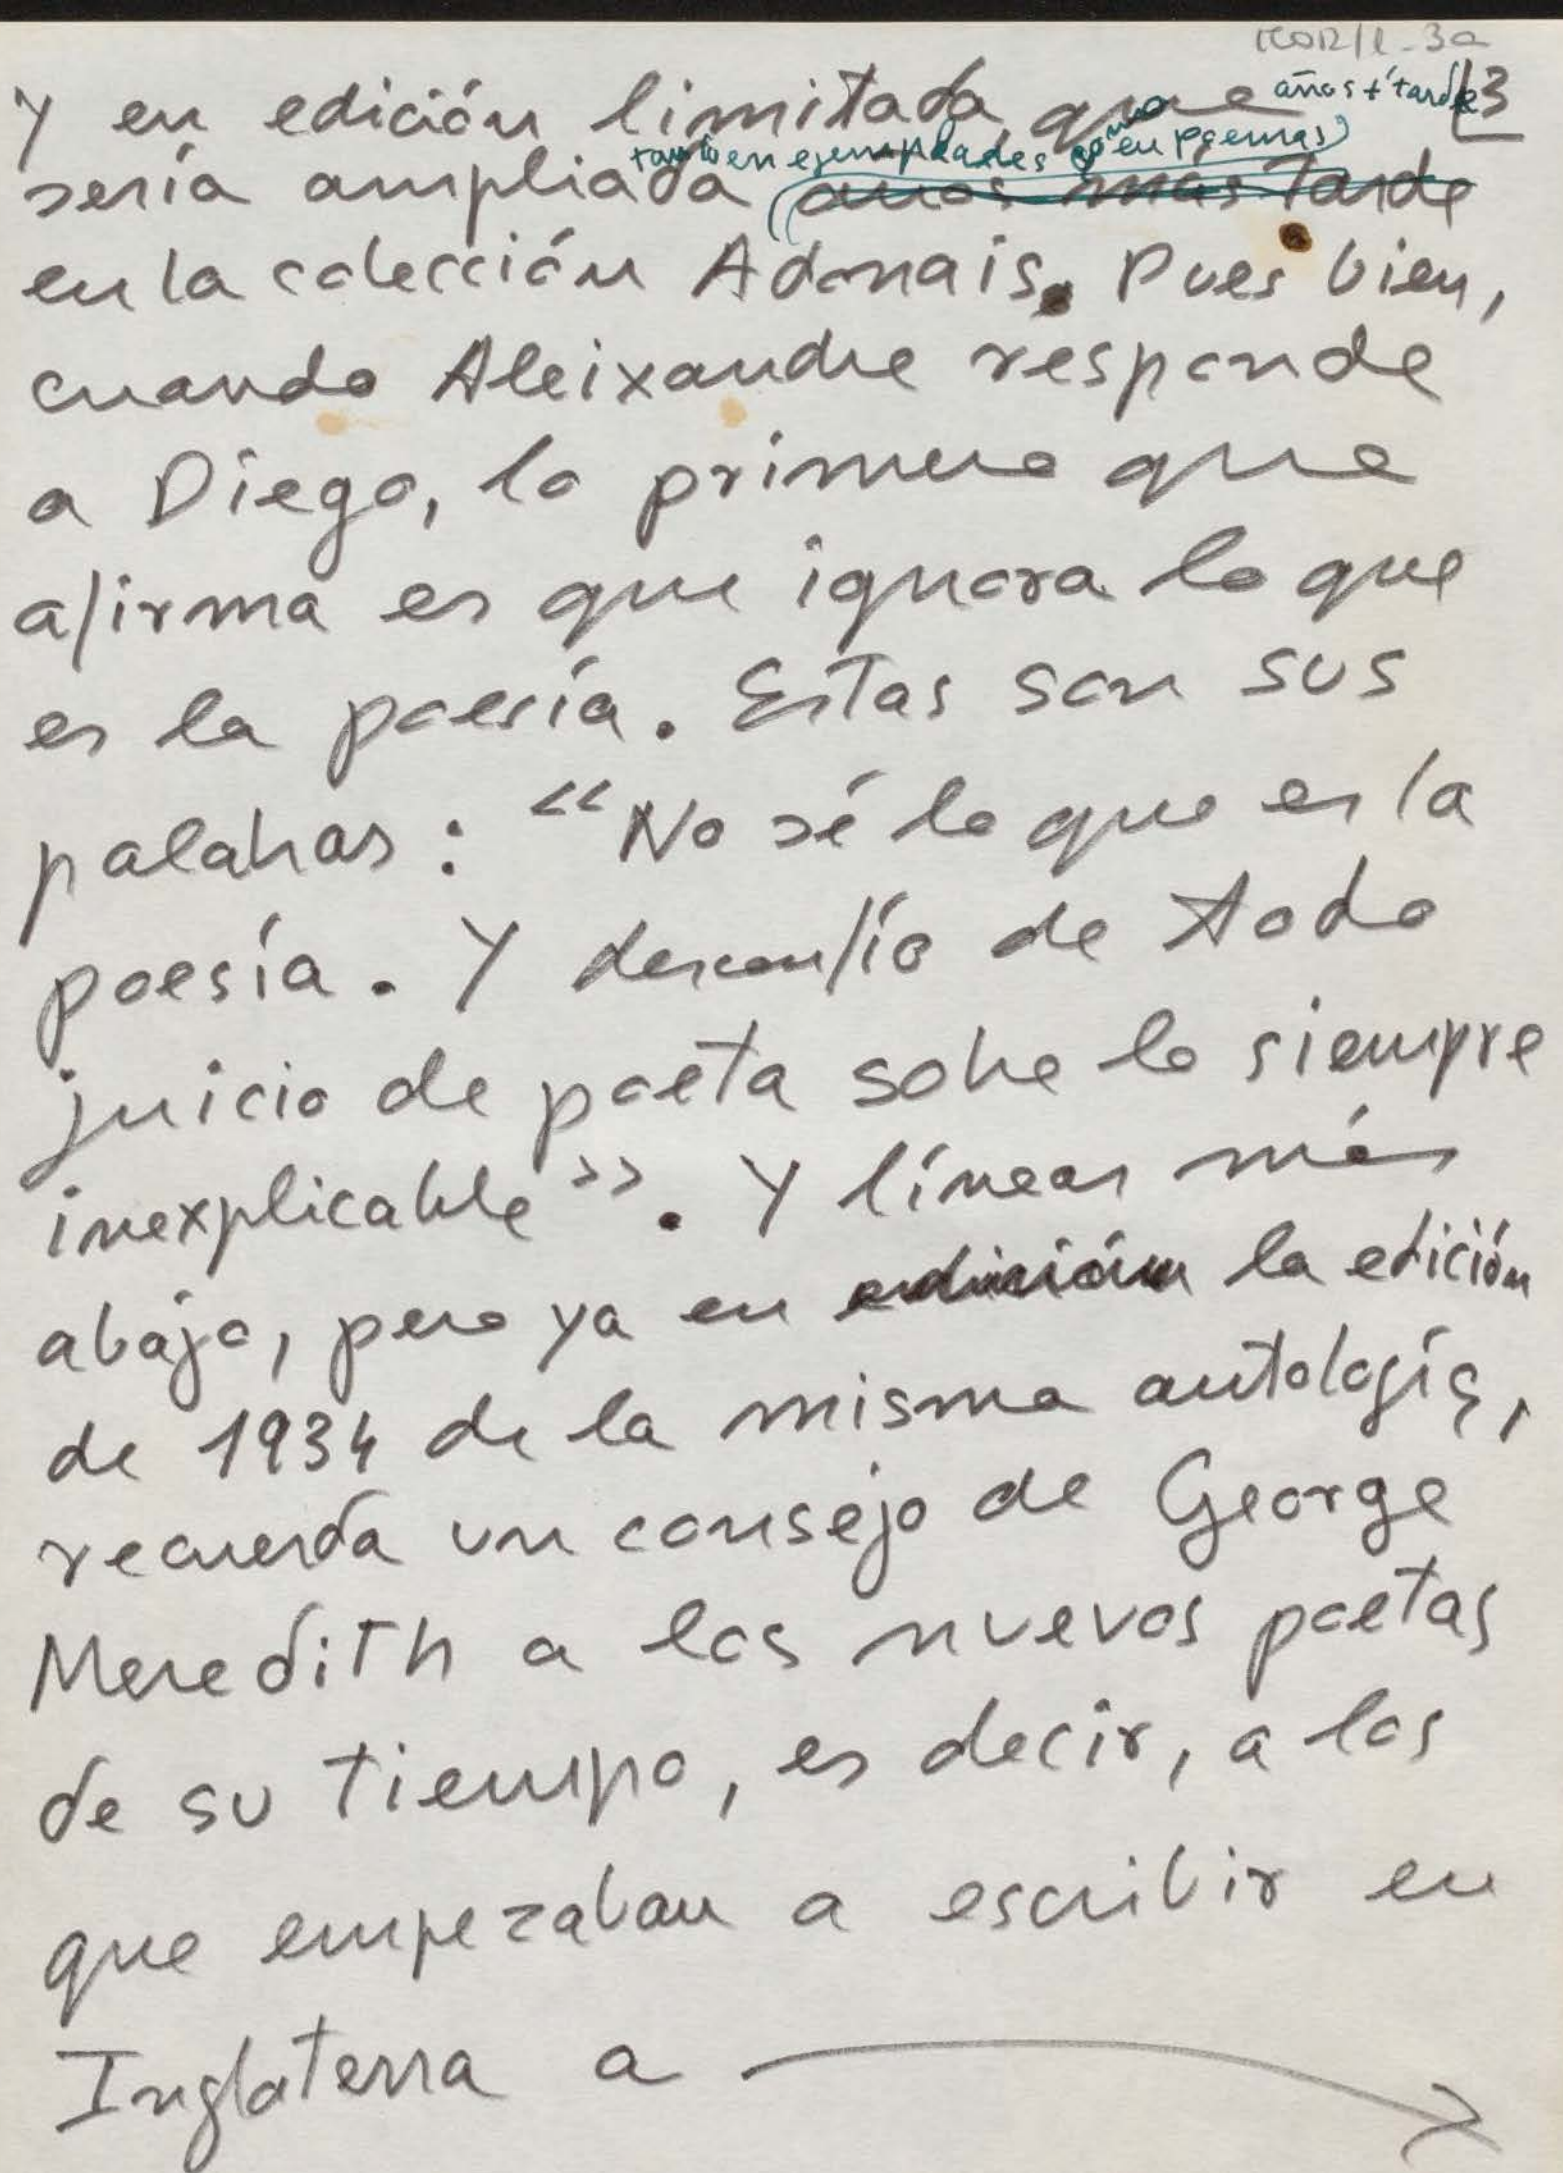 3
y en edición limitada, que años + tarde
sería ampliada (también en ejemplares como en poemas) años más tarde
en la colección Adonais. Pues bien,
cuando Aleixandre responde
a Diego, lo primero que
afirma es que ignora lo que
es la poesía. Estas son sus
palabras: “No sé lo que es la
poesía. Y desconfío de todo
juicio de poeta sobre lo siempre
inexplicable”. Y líneas más
abajo, pero ya en edición la edición
de 1934 de la misma antología,
recuerda un consejo de George
Meredith a los nuevos poetas
de su tiempo, es decir, a los
que empezaban a escribir en
Inglaterra a